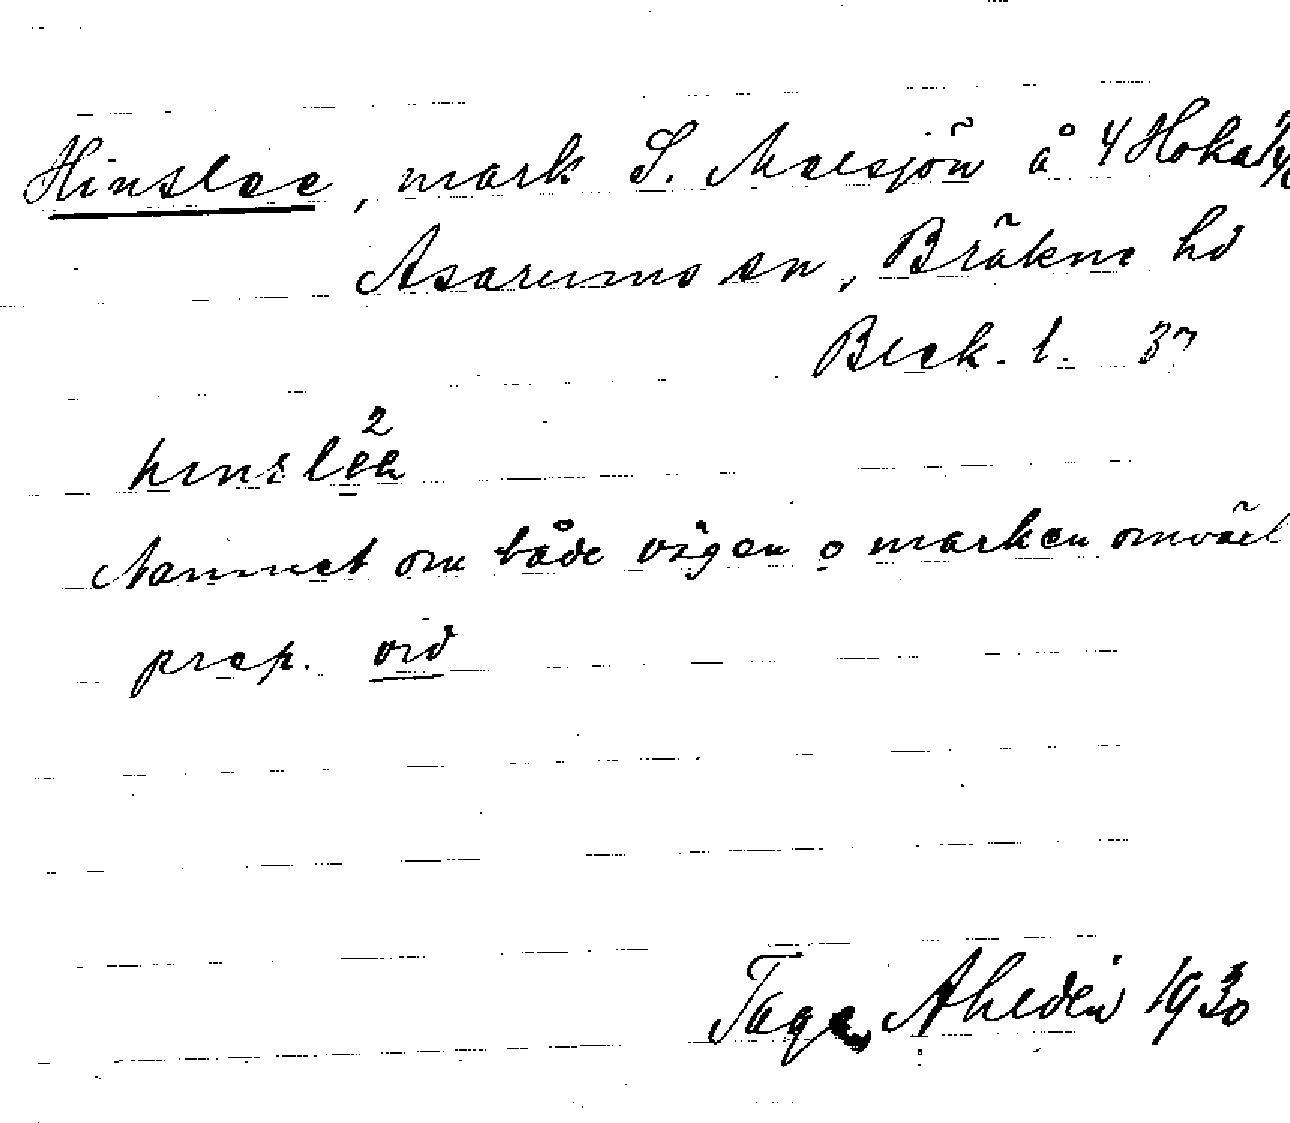 Hinslee, mark S. Malsjön å 4 Hoka
Asarums sn, Bräkne hd
Bleck. l. 37
hinslèe 2
Namnet om både vägen o marken omväxl
prep. vid
Tage Ahldén 1930